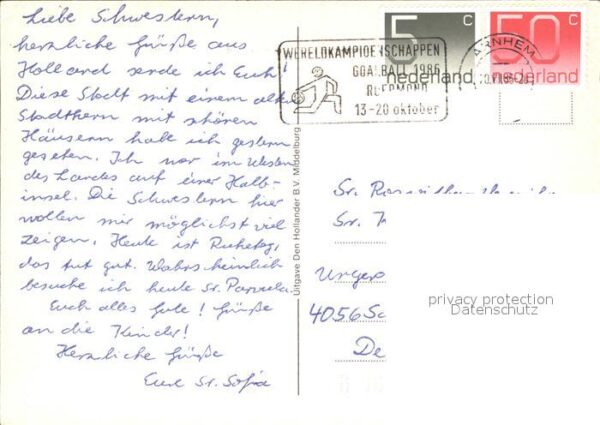 Liebe Schwestern,
herzliche Grüße aus
Holland sende ich Euch!
Diese Stadt mit einem alten
Stadtkern mit schönen
Häusern habe ich gestern
gesehen. Ich war im Westen
des Landes auf einer Halb-
insel. Die Schwestern hier
wollen mir möglichst viel
zeigen. Heute ist Ruhetag,
das tut gut. Wahrscheinlich
besuche ich heute Sr.
Euch alles Gute! Grüße
an die Kinder!
Herzliche Grüße
Eure Sr. Sofia
Uitgave Den Hollander B.V. Middelburg
WERELDKAMPIOENSCHAPPEN
GOALBALL 1986
ROERMOND
13-20 oktober
5 c
nederland
50 c
nederland
ARNHEM
Sr.
Sr.
4056
privacy protection
Datenschutz